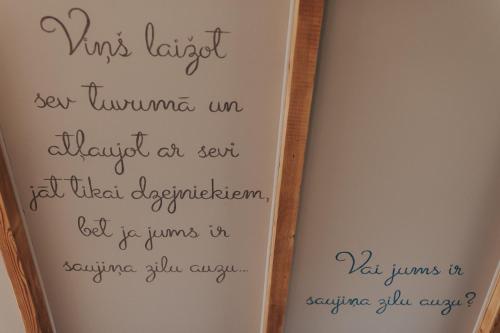 Viņš laižot
sev tuvumā un
atļaujot ar sevi
jāt tikai dzejniekiem,
bet ja jums ir
saujiņa zilu auzu...
Vai jums ir
saujiņa zilu auzu?